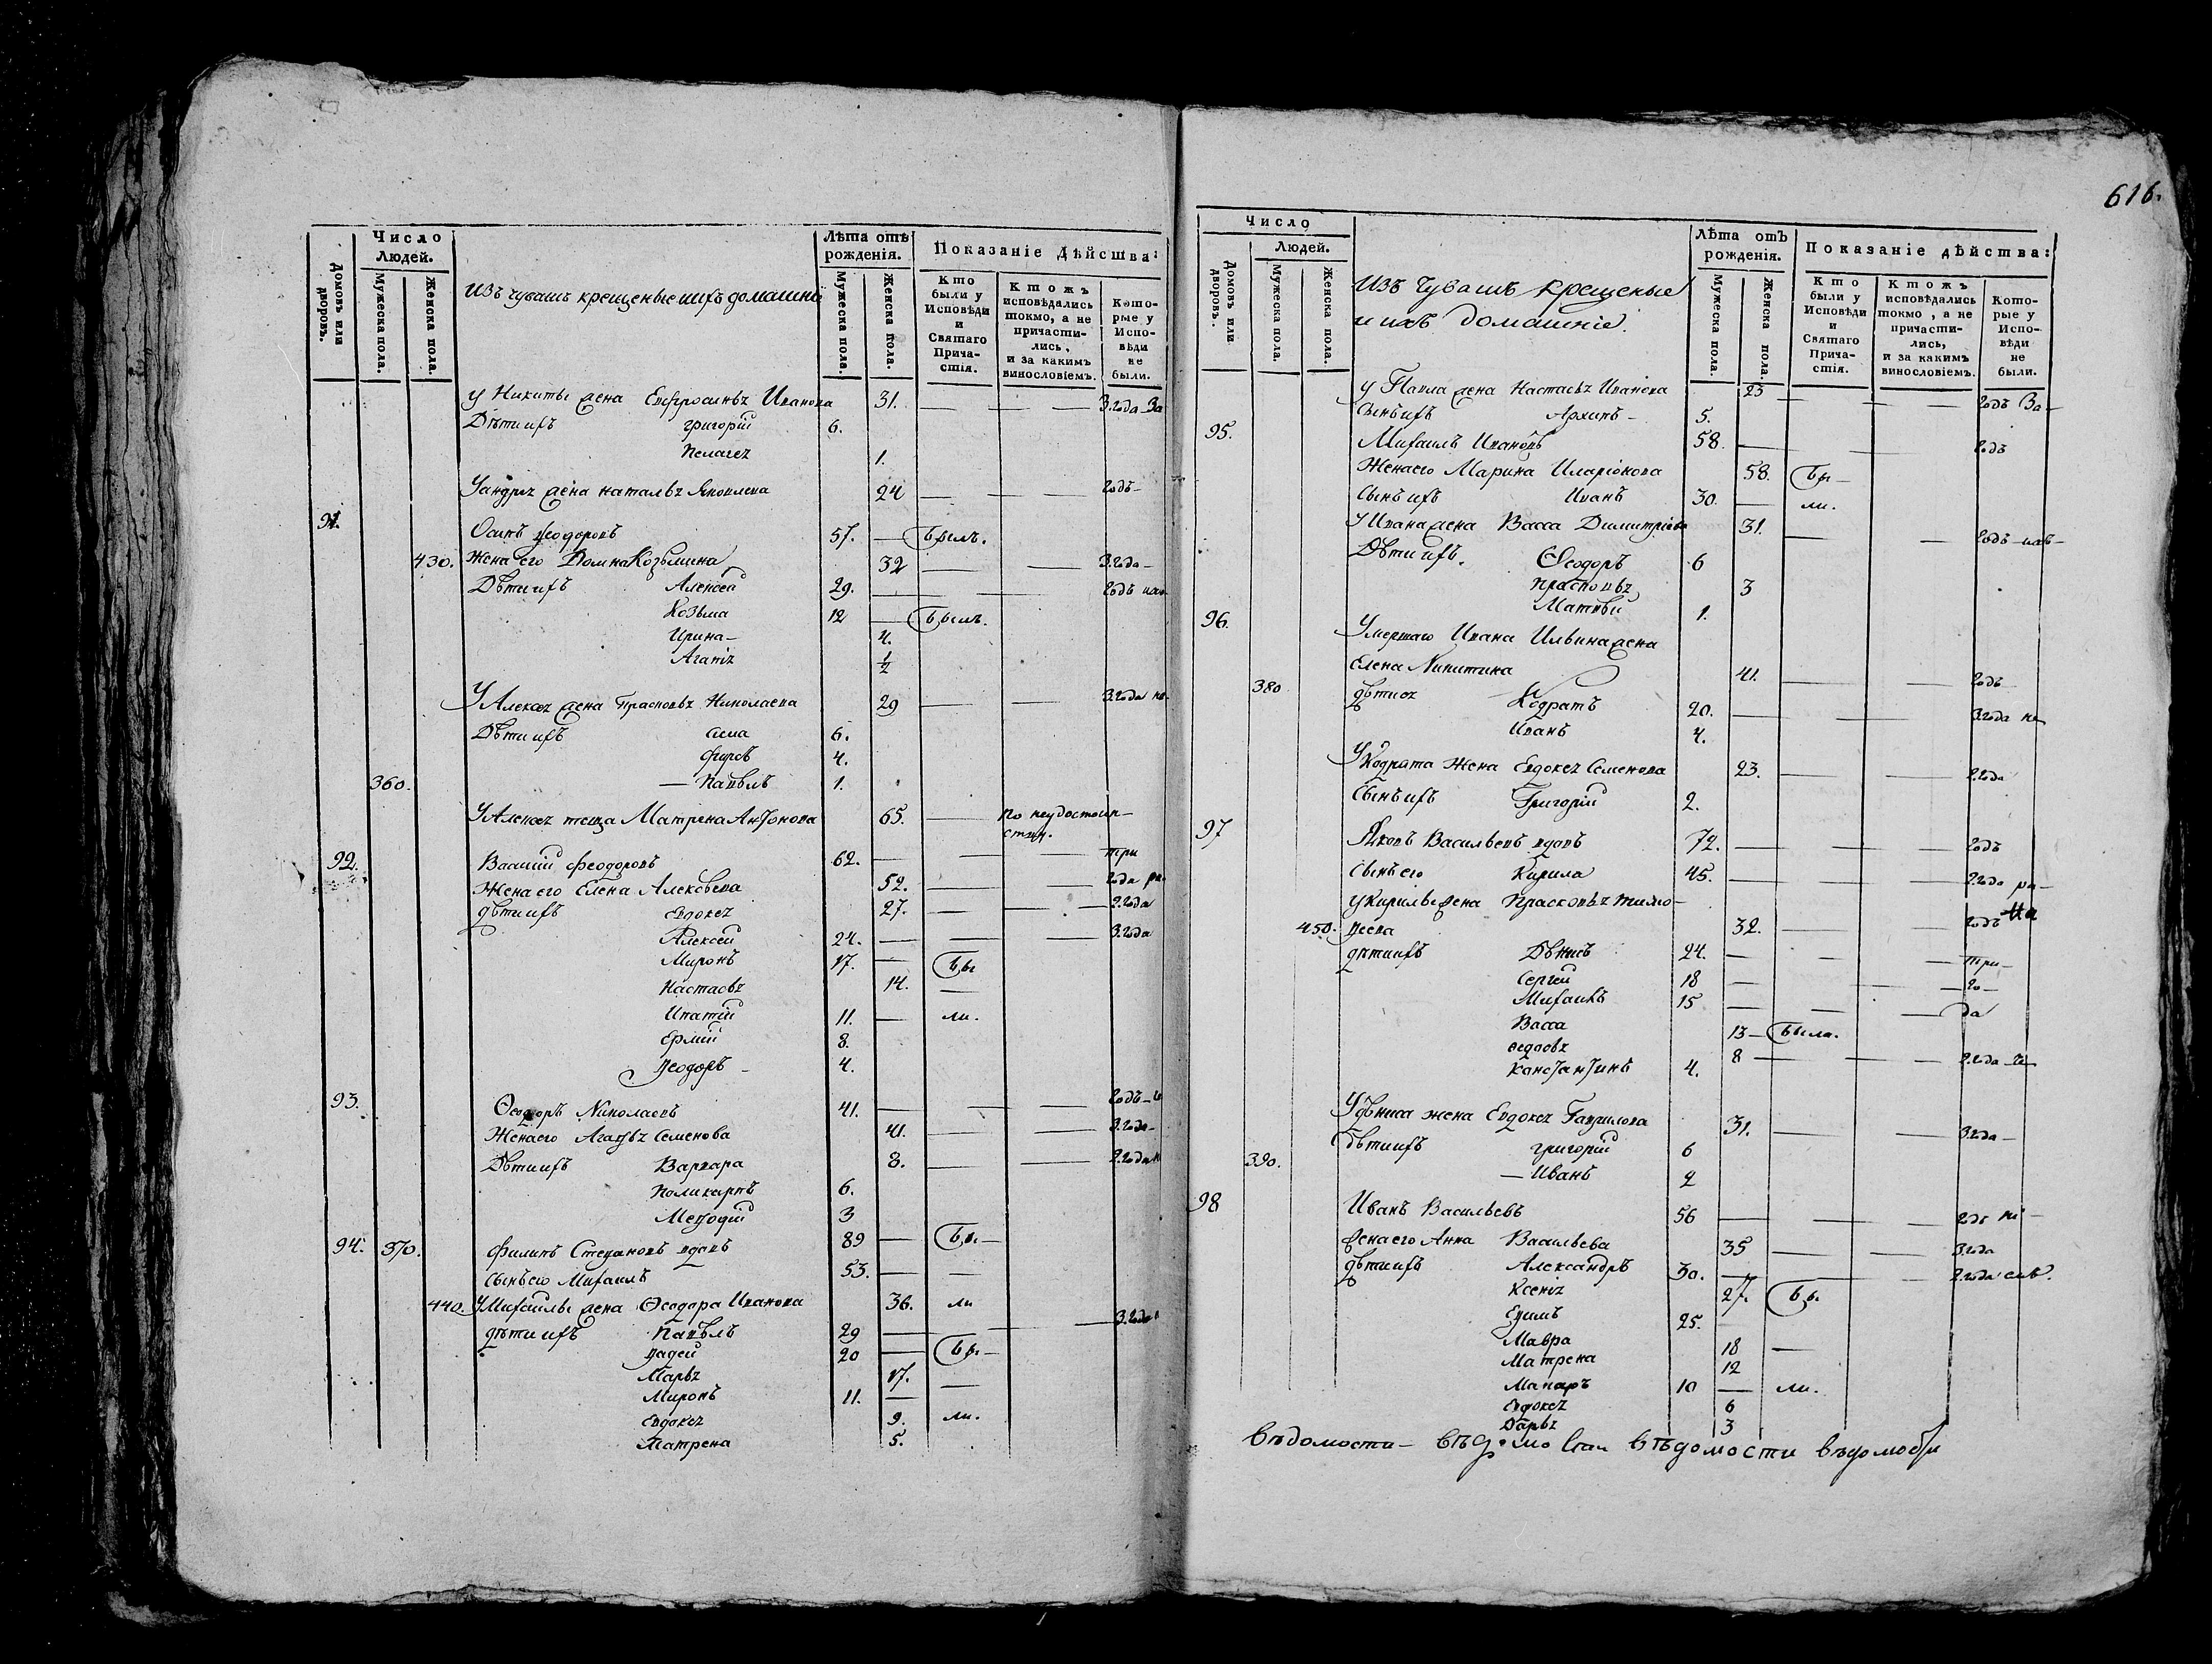 616.
Число
Людей.
Домовъ или дворовъ.
Мужеска пола.
Женска пола.
Изъ чувашъ крещеные ихъ домашние
Лѣта отъ
рожденія.
Мужеска пола.
Женска пола.
Показаніе дѣйства:
Кто были у Исповѣди и Святаго Прича-стія.
Ктожъ исповѣдались токмо, а не причасти-лись, и за какимъ винословіемъ.
Кото-рые у Испо-вѣди не были.
У Никиты жена Евфросинья Иванова 31. 3.года За
Дѣти ихъ григорій 6.
Пелагея 1.
У андрея жена наталья Яковлева 24 годъ
91. Осипъ Феодоровъ 57. былъ.
430. Жена его Домна Козьмина 32 3.года
Дѣти ихъ Алексей 29. годъ
Козьма 12 былъ.
Ирина 4.
Агапія 1/2
У Алексея жена Прасковья Николаева 29 3.года не
Дѣти ихъ 6.
4.
360. Павелъ 1.
У Алексея теща Матрена Антонова 65. по недостоин-
ству.
92. Василій Феодоровъ 62. три
Жена его Елена Алексѣева 52. года
дѣти ихъ Евдокея 27. 2.года
Алексей 24. 3.года
Миронъ 17. бы
Настасья 14.
Ипатій 11. ли.
Ермій 8.
Феодоръ 4.
93. Ѳеодоръ Николаевъ 41. годъ
Жена его Агафья Семенова 41. 3.года
Дѣти ихъ Варвара 8. 2.года
Поликарпъ 6.
Мефодій 3
94. 370. Филипъ Степановъ вдовъ 89 бы
сынъ его Михаилъ 53.
440. У Михаилы жена Ѳеодора Иванова 36. ли
дѣти ихъ Павелъ 29 3.года
Фадей 20 бы
Марья 17.
Миронъ 11.
Евдокея 9. ли.
Матрена 5.
Число
Людей.
Домовъ или дворовъ.
Мужеска пола.
Женска пола.
Изъ Чувашъ крещеные
и ихъ домашніе.
Лѣта отъ
рожденія.
Мужеска пола.
Женска пола.
Показаніе дѣйства:
Кто были у Исповѣди и Святаго Прича-стія.
Ктожъ исповѣдались токмо, а не причасти-лись, и за какимъ винословіемъ.
Кото-рые у Испо-вѣди не были.
у Павла жена Настасья Иванова 23 годъ За
Сынъ ихъ Архипъ 5.
95. Михаилъ Ивановъ 58. годъ
Жена его Марина Иларіонова 58. бы
Сынъ ихъ Иванъ 30. ли.
У Ивана жена Васса Димитріева 31. годъ
Дѣти ихъ. Ѳеодоръ 6
Прасковья 3
Матвѣй 1.
96. Умершаго Ивана Ильина жена
Елена Никитина 41. годъ
380 дѣти ея Кодратъ 20. 3.года не
Иванъ 4.
У Кодрата жена Евдокея Семенова 23. 2.года
Сынъ ихъ Григорій 2.
97 Яковъ Васильевъ вдовъ 72. годъ
Сынъ его Кирила 45. 2.года
у Кирилы жена Прасковья тимо-
450. феева 32. годъ На
дѣти ихъ Дѣнисъ 24. три
Сергей 18 го
Михаилъ 15 да
Васса 13 была.
Федосья 8 2.года
Константинъ 4.
У дѣниса жена Евдокея Гаврилова 31. 3.года
дѣти ихъ григорій 6
390. Иванъ 2
98 Иванъ Васильевъ 56 годъ
жена его Анна Васильева 35 3.года
дѣти ихъ Александръ 30. 2.года
Ксенія 27. бы
Ефимъ 25.
Мавра 18
Матрена 12
Макаръ 10 ли.
Евдокея 6
Дарья 3
вѣдомости вѣдомо вѣдомости